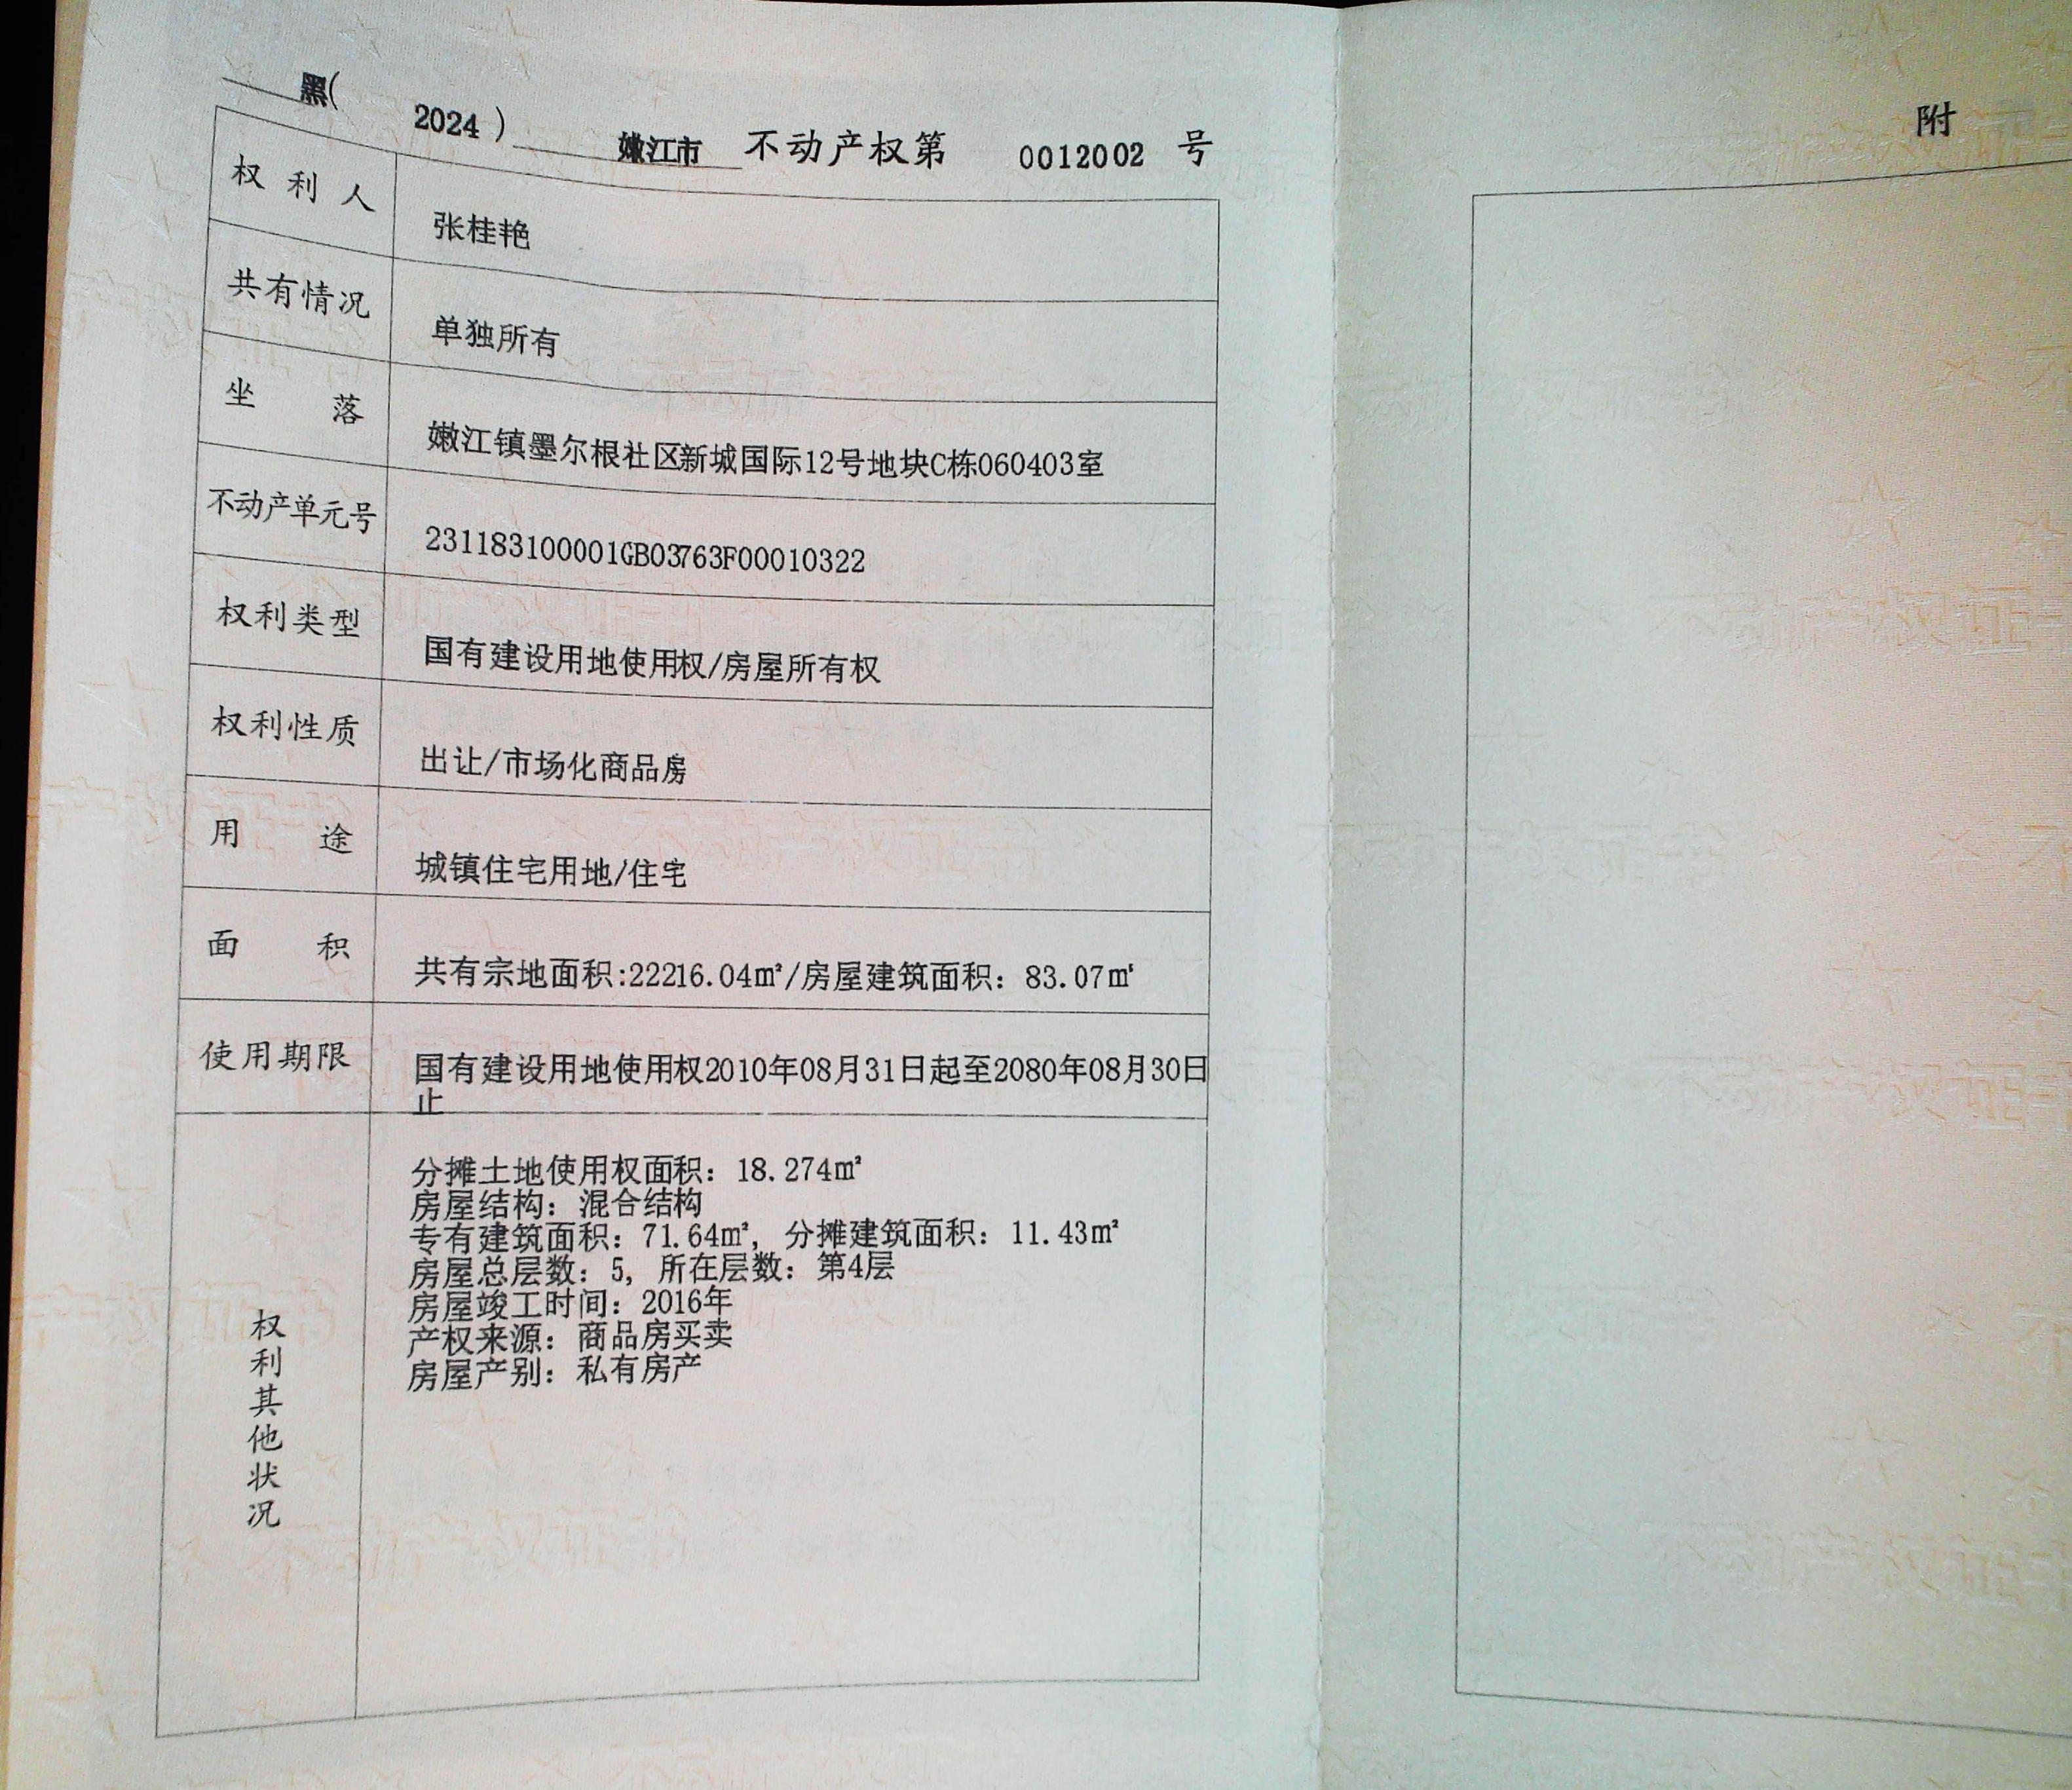 黑( 2024 ) 嫩江市 不动产权第 0012002 号
权利人 张桂艳
共有情况 单独所有
坐落 嫩江镇墨尔根社区新城国际12号地块C栋060403室
不动产单元号 231183100001GB03763F00010322
权利类型 国有建设用地使用权/房屋所有权
权利性质 出让/市场化商品房
用途 城镇住宅用地/住宅
面积 共有宗地面积:22216.04㎡/房屋建筑面积：83.07㎡
使用期限 国有建设用地使用权2010年08月31日起至2080年08月30日
止
权利其他状况
分摊土地使用权面积：18.274㎡
房屋结构：混合结构
专有建筑面积：71.64㎡，分摊建筑面积：11.43㎡
房屋总层数：5，所在层数：第4层
房屋竣工时间：2016年
产权来源：商品房买卖
房屋产别：私有房产
附